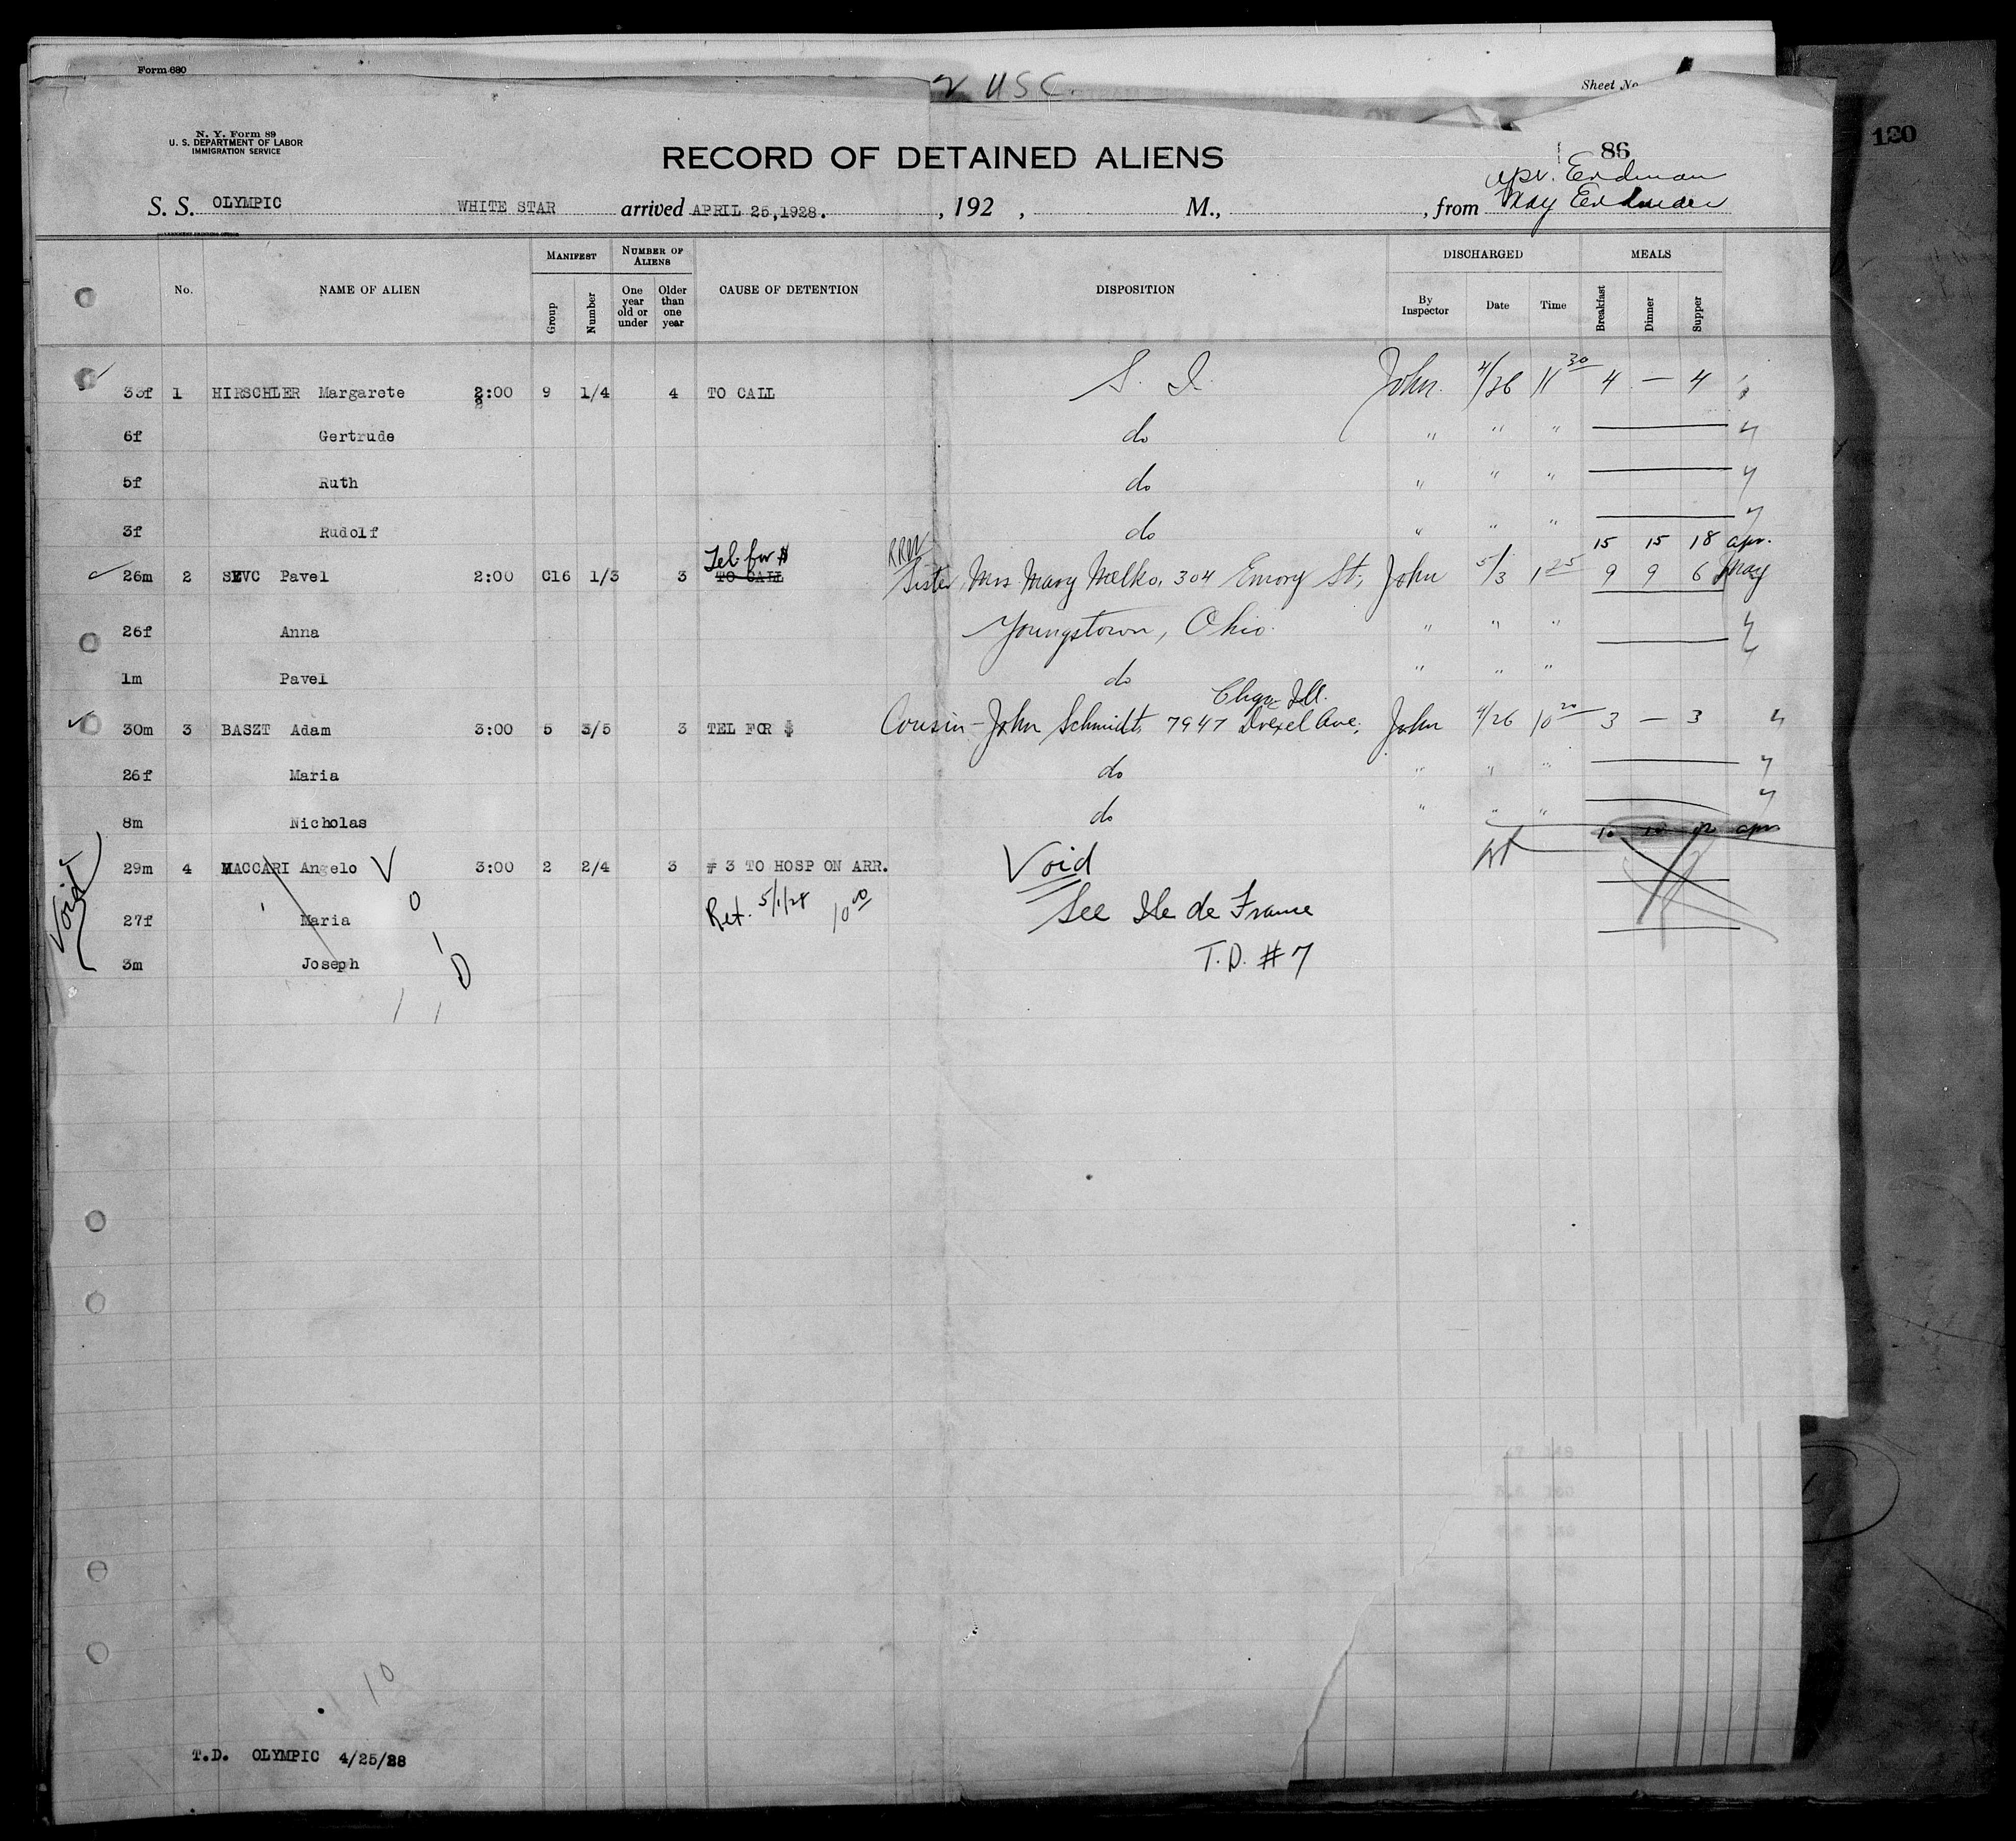 Form 630
2 USC.
Sheet No
120
N. Y. Form 89
U. S. DEPARTMENT OF LABOR
IMMIGRATION SERVICE
RECORD OF DETAINED ALIENS
86
Apr. Erdman
May
S. S. OLYMPIC WHITE STAR arrived APRIL 25,1928. , 192 , M., , from
No. NAME OF ALIEN MANIFEST Group Number NUMBER OF ALIENS One year old or under Older than one year CAUSE OF DETENTION DISPOSITION DISCHARGED By Inspector Date Time MEALS Breakfast Dinner Supper
1 HIRSCHLER Margarete 2:00 9 1/4 4 TO CALL S. I. John. 4/26 11 30 4 — 4
6f Gertrude do " " "
5f Ruth do " " "
3f Rudolf do " " "
15 15 18 apr.
Tel. for $
26m 2 SEVC Pavel 2:00 C16 1/3 3 TO CALL Sister Mrs. Mary Melko, 304 Emory St., John 5/3 1 25 9 9 6 May
26f Anna Youngstown, Ohio. " " "
1m Pavel do " " "
Ill.
30m 3 BASZT Adam 3:00 5 3/5 3 TEL FOR $ Cousin - John Schmidt, 7947 Drexel Ave. John 4/26 10 20 3 — 3
26f Maria do " " "
8m Nicholas do " " "
10 apr
29m 4 MACCARI Angelo V 3:00 2 2/4 3 # 3 TO HOSP ON ARR. Void
Void
27f Maria O Ret. 5/1/28 10 00 See Ile de France
I
3m Joseph D T.D. # 7
10
T.D. OLYMPIC 4/25/28